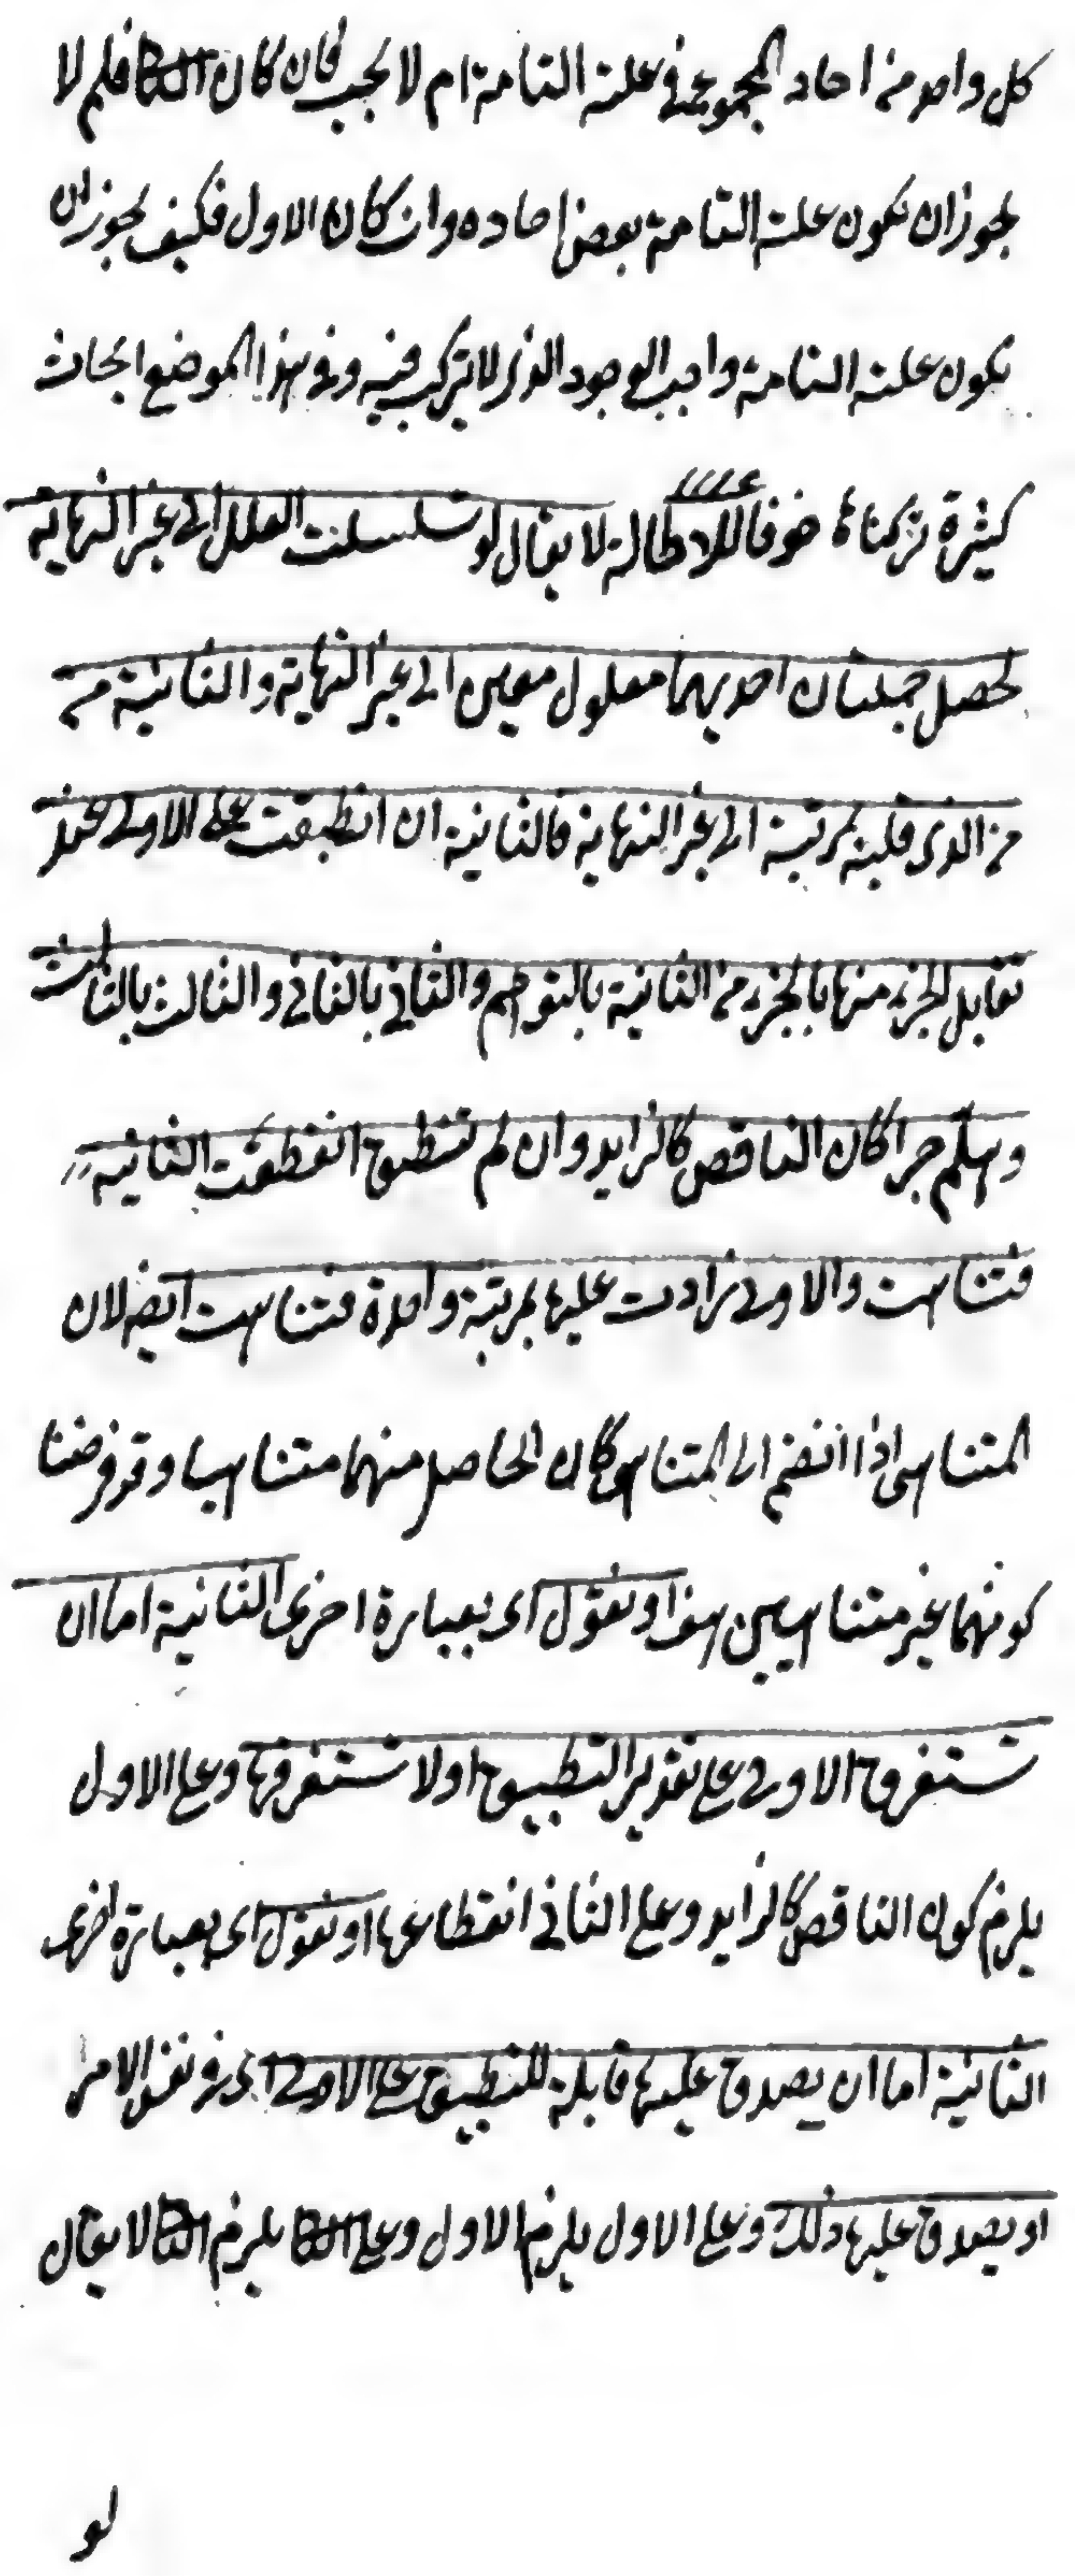 كل واحد من احاد المجموع في علته التامة ام لا يجب فان كان الثاني فلم لا
يجوز ان يكون علته التامة بعض احاده وان كان الاول فكيف يجوز ان
يكون علته التامة واجب الوجود الذي لا تركيب فيه وفي هذا الموضع ابحاث
كثيرة تركناها خوفا للاطالة لا يقال لو تسلسلت العلل الى غير النهاية
يحصل جملتان احديهما معلول معين الى غير النهاية والثانية من
من الذي قبله بمرتبة الى غير النهاية فالثانية ان انطبقت على الاولى عند
تقابل الجزء منها بالجزء من الثانية بالتوهم والثاني بالثاني والثالث بالثالث
وهلم جرا كان الناقص كالزايد وان لم تنطبق انقطعت الثانية
فتناهت والاولى زادت عليها بمرتبة واحدة فتناهت ايضا لان
المتناهى اذا انضم الى المتناهى كان الحاصل منهما متناهيا وقد فرضنا
كونهما غير متناهيين هف او نقول اى بعبارة اخرى الثانية اما ان
تستغرق الاولى على تقدير التطبيق اولا تستغرقها وعلى الاول
يلزم كون الناقص كالزايد وعلى الثاني انقطاعها او نقول اى بعبارة اخرى
الثانية اما ان يصدق عليها قابلة للتطبيق على الاولى اى في نفس الامر
او يصدق عليها ذلك وعلى الاول يلزم الاول وعلى الثاني يلزم الثاني لا يقال
لو